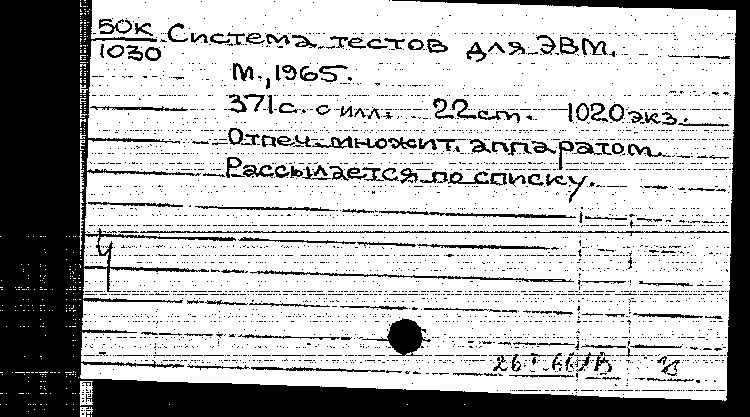 50К
1030
Система тестов для ЭВМ.
М., 1965.
371с. с илл. 22 см. 1020 экз.
Отпеч. множит. аппаратом.
Рассылается по списку.
Ч